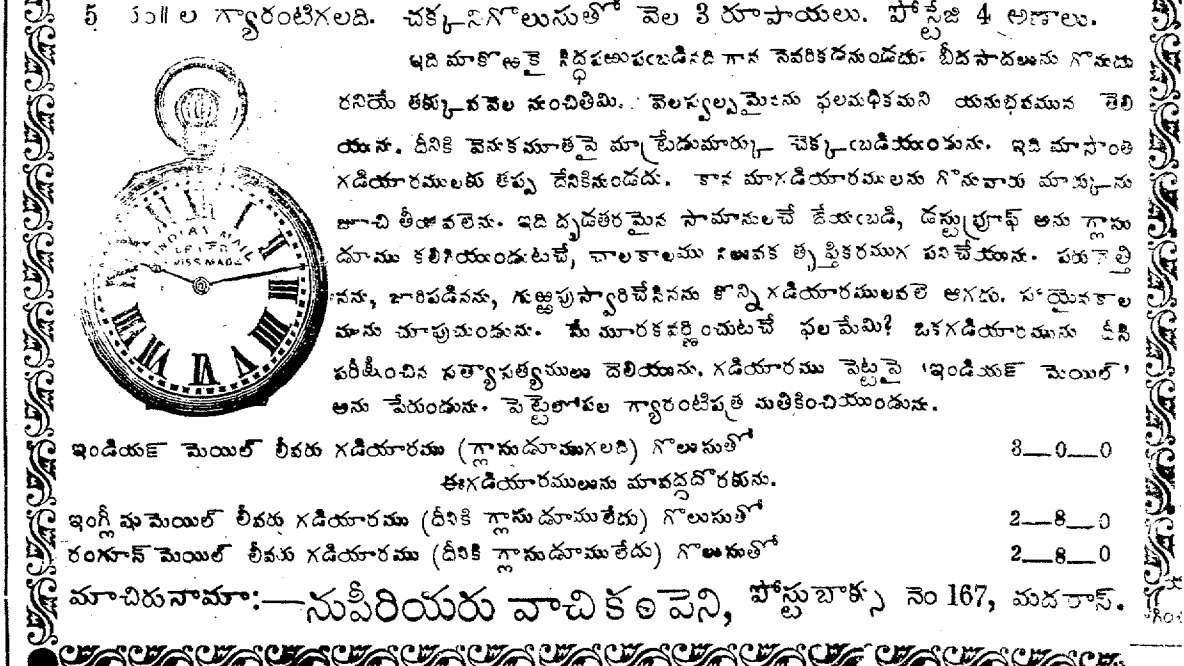 5 సం॥ల గ్యారంటిగలది. చక్కనిగొలుసుతో వెల 3 రూపాయలు. పోస్టేజి 4 అణాలు.
ఇది మాకొఱకై సిద్ధపఱుపఁబడినది గాన నెవరికడనుండదు. బీదసాదలును గొనుదు
రనియే తక్కువవెల నుంచితిమి. వెలస్వల్పమైనను ఫలమధికమని యనుభవమున తెలి
యును. దీనికి వెనుకమూతపై మాట్రేడుమార్కు చెక్కఁబడియుండును. ఇది మాసొంత
గడియారములకు తప్ప దేనికినుండదు. కాన మాగడియారములను గొనువారు మార్కును
జూచి తీయవలెను. ఇది దృడతరమైన సామానులచే జేయఁబడి, డస్టుప్రూఫ్ అను గ్లాసు
డూము కలిగియుండుటచే, చాలకాలము నిలువక తృప్తికరముగ పనిచేయును. పరుగెత్తి
నను, జారిపడినను, గుఱ్ఱపుస్వారిచేసినను కొన్నిగడియారములవలె ఆగదు. సరియైనకాల
మును చూపుచుండును. మే మూరకవర్ణించుటచే ఫలమేమి? ఒకగడియారమును దీసి
పరీక్షించిన సత్యాసత్యములు దెలియును. గడియారము పెట్టెపై 'ఇండియన్ మెయిల్'
అను పేరుండును. పెట్టెలోపల గ్యారంటిపత్ర మతికించియుండును.
INDIAN MAIL
LEVER
SWISS MADE
ఇండియన్ మెయిల్ లీవరు గడియారము (గ్లాసుడూముగలది) గొలుసుతో 3—0—0
ఈగడియారములును మావద్దదొరకును.
ఇంగ్లీషుమెయిల్ లీవరు గడియారము (దీనికి గ్లాసుడూములేదు) గొలుసుతో 2—8—0
రంగూన్ మెయిల్ లీవరు గడియారము (దీనికి గ్లాసుడూములేదు) గొలుసుతో 2—8—0
మాచిరునామా:—సుపీరియరు వాచికంపెని, పోస్టుబాక్సు నెం 167, మదరాస్.